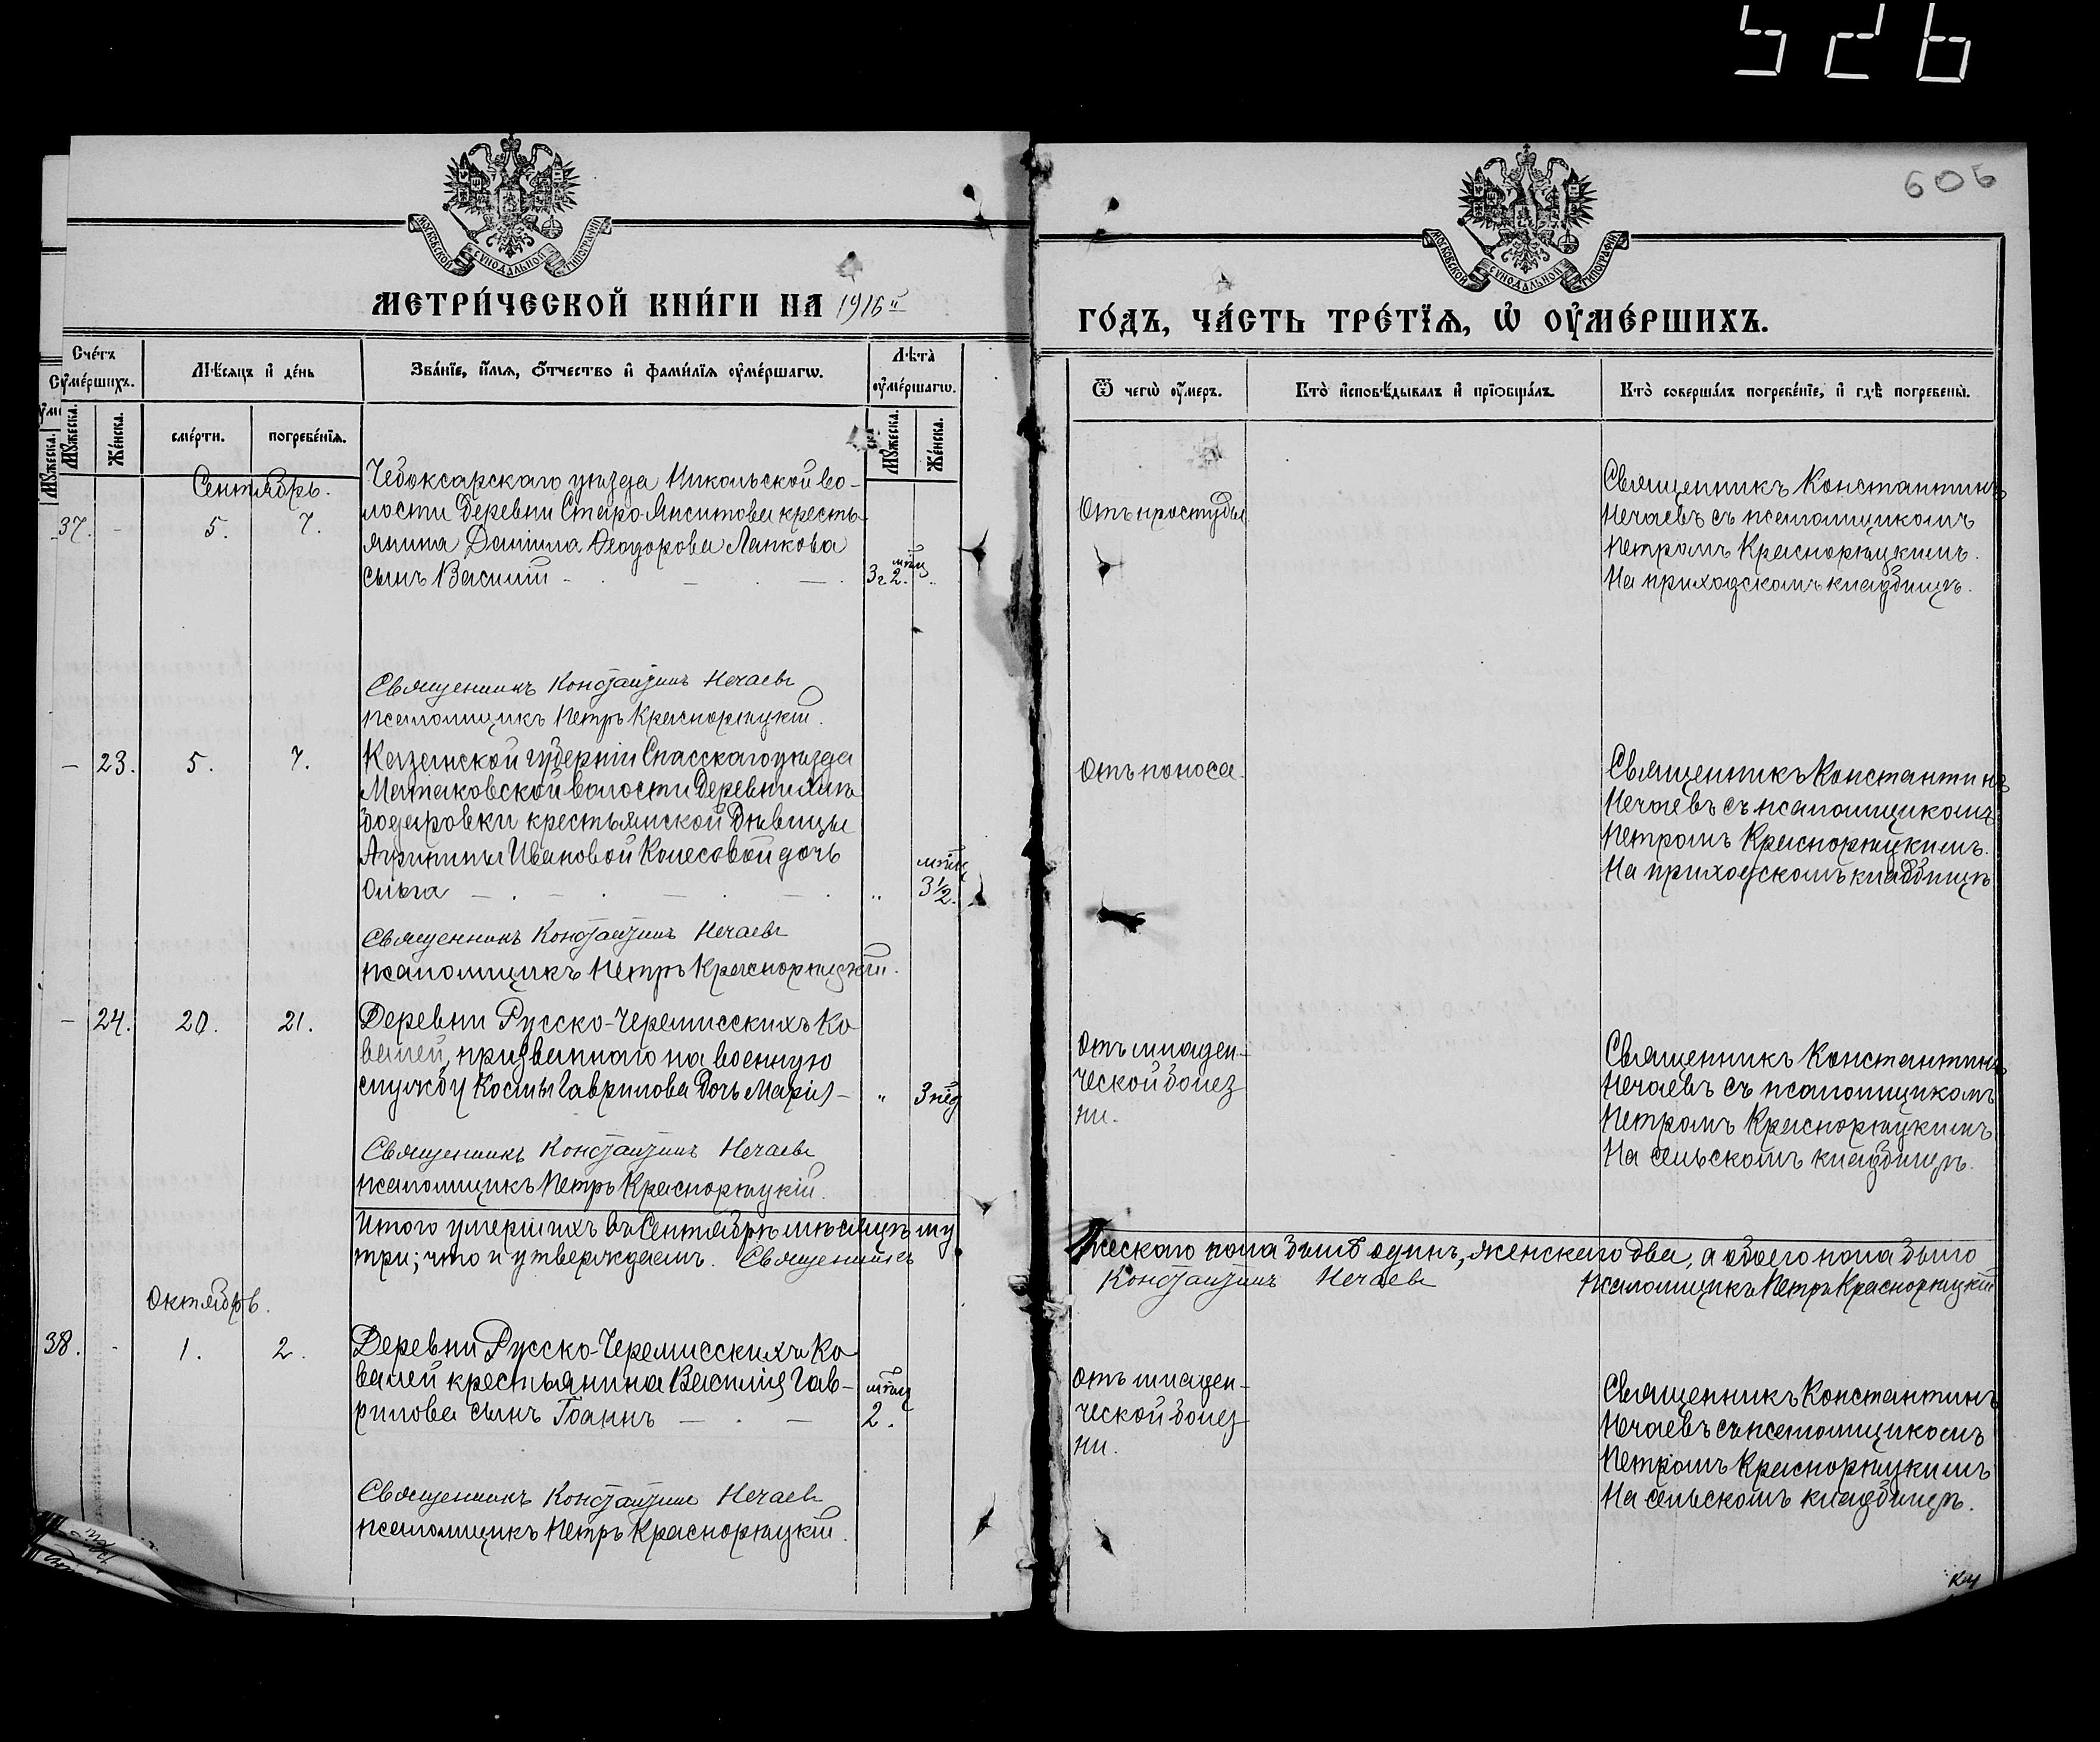 526
606
МОСКОВСКОЙ СУНОДАЛЬНОЙ ТИПОГРАФІИ
МОСКОВСКОЙ СУНОДАЛЬНОЙ ТИПОГРАФІИ
МЕТРИ́ЧЕСКОЙ КНИ́ГИ НА 1916й
ГО́ДЪ, ЧА́СТЬ ТРЕ́ТЇѦ, Ѡ҆ ОУ҆МЕ́РШИХЪ.
Сче́тъ оу҆ме́ршихъ.
Мꙋ́жеска.
Же́нска.
Мѣ́сѧцъ и҆ де́нь
сме́рти.
погребе́нїѧ.
Зва́нїе, и҆́мѧ, ѻ҆́тчество и҆ фами́лїѧ оу҆ме́ршагѡ.
Лѣ̑та оу҆ме́ршагѡ.
Мꙋ́жеска.
Же́нска.
Ѿ чегѡ̀ оу҆́меръ.
Кто̀ и҆сповѣ́дывалъ и҆ прїѻбща́лъ.
Кто̀ соверша́лъ погребе́нїе, и҆ гдѣ̀ погребены̀.
Сентябрь.
37. - 5. 7.
Чебоксарскаго уѣзда Никольской во-
лости деревни Старо-
янина Даниила Ѳеодорова Лапкова
сынъ Василій
3 г. 2. мѣсц
Отъ простуды
Священникъ Константинъ
Нечаевъ съ псаломщикомъ
Петромъ Краснорѣцкимъ.
На приходскомъ кладбищѣ.
Священникъ Константинъ Нечаевъ
псаломщикъ Петръ Краснорѣцкій.
- 23. 5. 7.
Казанской губерніи Спасскаго уѣзда
Матаковской волости деревни
крестьянской дѣвицы
Агрипины Ивановой Колесовой дочь
Ольга
„ мѣсц 3½.
Отъ поноса.
Священникъ Константинъ
Нечаевъ съ псаломщикомъ
Петромъ Краснорѣцкимъ.
На приходскомъ кладбищѣ
Священникъ Константинъ Нечаевъ
псаломщикъ Петръ Краснорѣцкій.
- 24. 20. 21.
Деревни Русско-Черемисскихъ Ко
валей, призваннаго на военную
службу Космы Гаврилова дочь Марія -
„ 3 нед
Отъ младен-
ческой болез
ни.
Священникъ Константинъ
Нечаевъ съ псаломщикомъ
Петромъ Краснорѣцкимъ
На сельскомъ кладбищѣ.
Священникъ Константинъ Нечаевъ
псаломщикъ Петръ Краснорѣцкій.
Итого умершихъ въ Сентябрѣ мѣсяцѣ му
жескаго пола былъ одинъ, женскаго два, а обоего пола было
три; что и утверждаемъ. Священникъ
Константинъ Нечаевъ псаломщикъ Петръ Краснорѣцкій
Октябрь.
38. - 1. 2.
Деревни Русско-Черемисскихъ Ко
валей крестьянина Василія Гав-
рилова сынъ Іоаннъ
мѣсц 2.
Отъ младен-
ческой болез
ни.
Священникъ Константинъ
Нечаевъ съ псаломщикомъ
Петромъ Краснорѣцкимъ
На сельскомъ кладбищѣ.
Священникъ Константинъ Нечаевъ
псаломщикъ Петръ Краснорѣцкій.